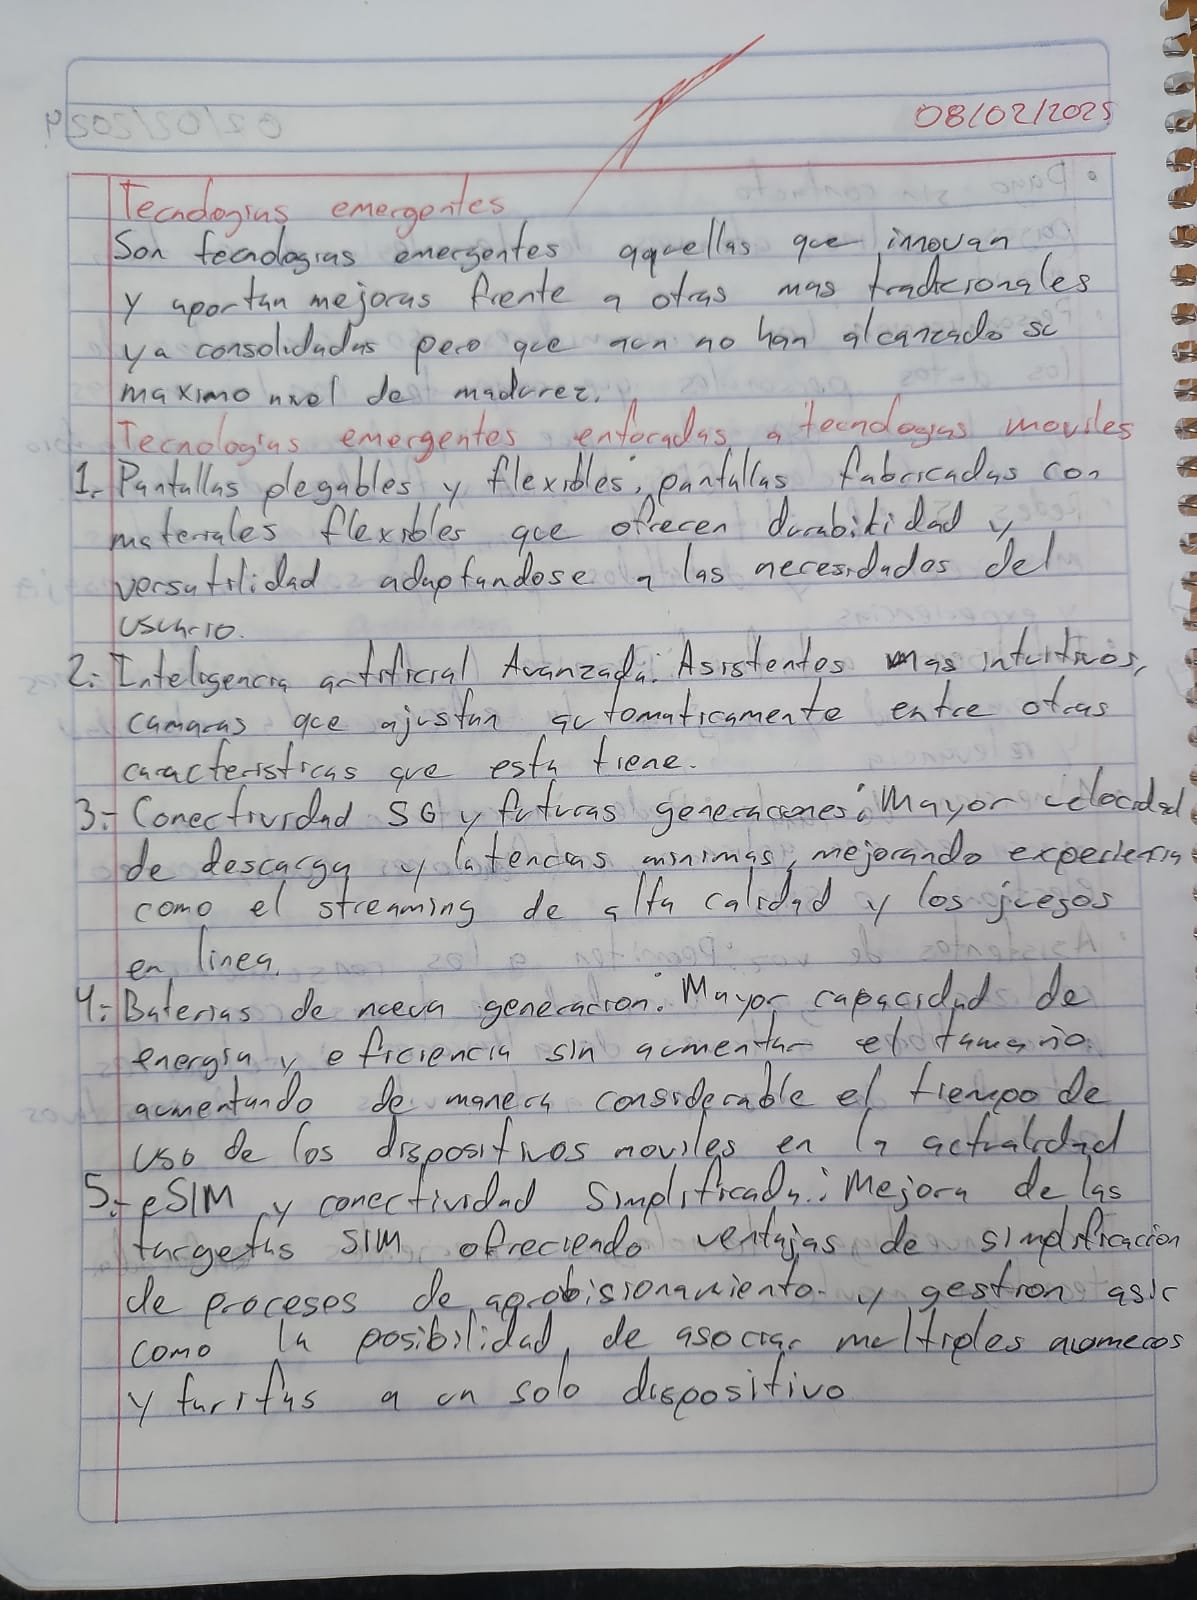 08/02/2025
Tecnologias emergentes
Son tecnologias emergentes aquellas que innovan
y aportan mejoras frente a otras mas tradicionales
ya consolidadas pero que aun no han alcanzado su
maximo nivel de madurez.
Tecnologias emergentes enfocadas a tecnologias moviles
1.- Pantallas plegables y flexibles: pantallas fabricadas con
materiales flexibles que ofrecen durabilidad y
versatilidad adaptandose a las necesidades del
usuario.
2.- Inteligencia artificial Avanzada: Asistentes mas intuitivos,
camaras que ajustan automaticamente entre otras
caracteristicas que esta tiene.
3.- Conectividad 5G y futuras generaciones: Mayor velocidad
de descarga y latencias minimas, mejorando experiencia
como el streaming de alta calidad y los juegos
en linea.
4.- Baterias de nueva generacion: Mayor capacidad de
energia y eficiencia sin aumentar el tamaño
aumentando de manera considerable el tiempo de
uso de los dispositivos moviles en la actualidad
5.- eSIM y conectividad Simplificada: Mejora de las
targetas SIM ofreciendo ventajas de simplificacion
de proceses de aprobisionamiento y gestion asic
como la posibilidad de asociar multiples numeros
y tarifas a un solo dispositivo